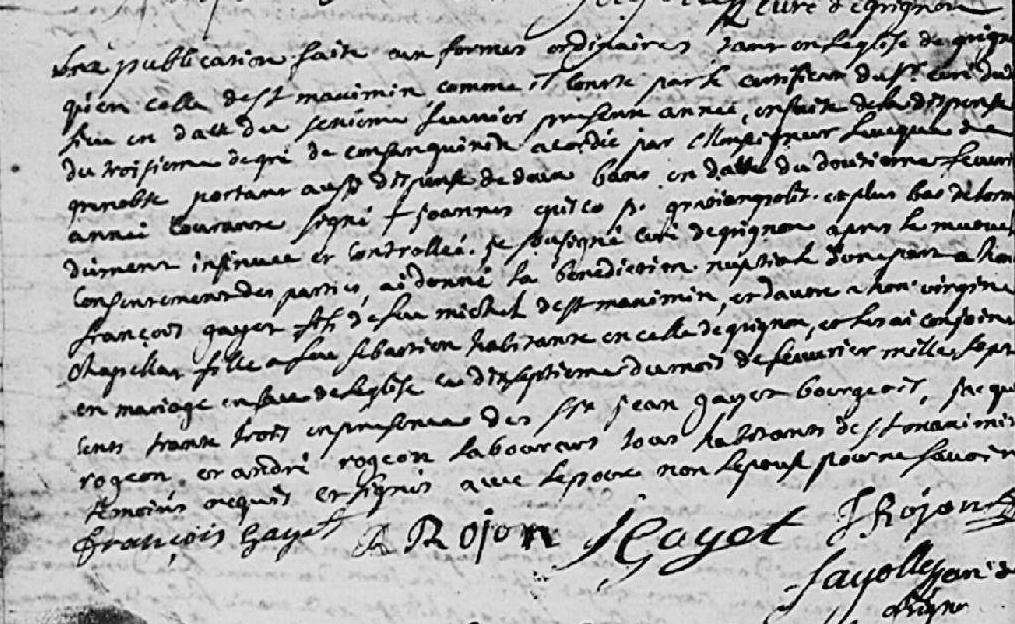 curé de grignon
publication faite aux formes ordinaires tant en leglise de grign
qu'en celle de st maximin, comme il conste par le certificat du sr curé dud
lieu en datte du fevrier presente année, ensuite de la dispense
du troisieme degré de consanguinité acordée par Monseigneur leveque de
grenoble portant aussy dispense de deux bans en datte du douzieme fevrie
année courante signé + joannes epis co p. gratianopolit. et plus bas
dument insinuee et controllée. je sousigné curé de grignon apres le mutuel
consentement des parties, ai donné la bénédiction nuptiale d'une part a hon
françois gayet fils de feu michel de st maximin, et dautre a hon. virgine
Chapellas fille a feu sebastien habitante en celle de grignon, et les ai conjoint
en mariage en face de leglise ce dixseptieme du mois de feuvrier mille sept
cents trante trois en presence des srs jean gayet bourgeois, jacqu
rogeon et andré rogeon laboureurs tous habitants de st maximin
témoins requis et signés avec lepoux non lepouse pour ne savoir
françois Gayet A Rojon J Gayet J Rojon
fayolle curé de
Grign